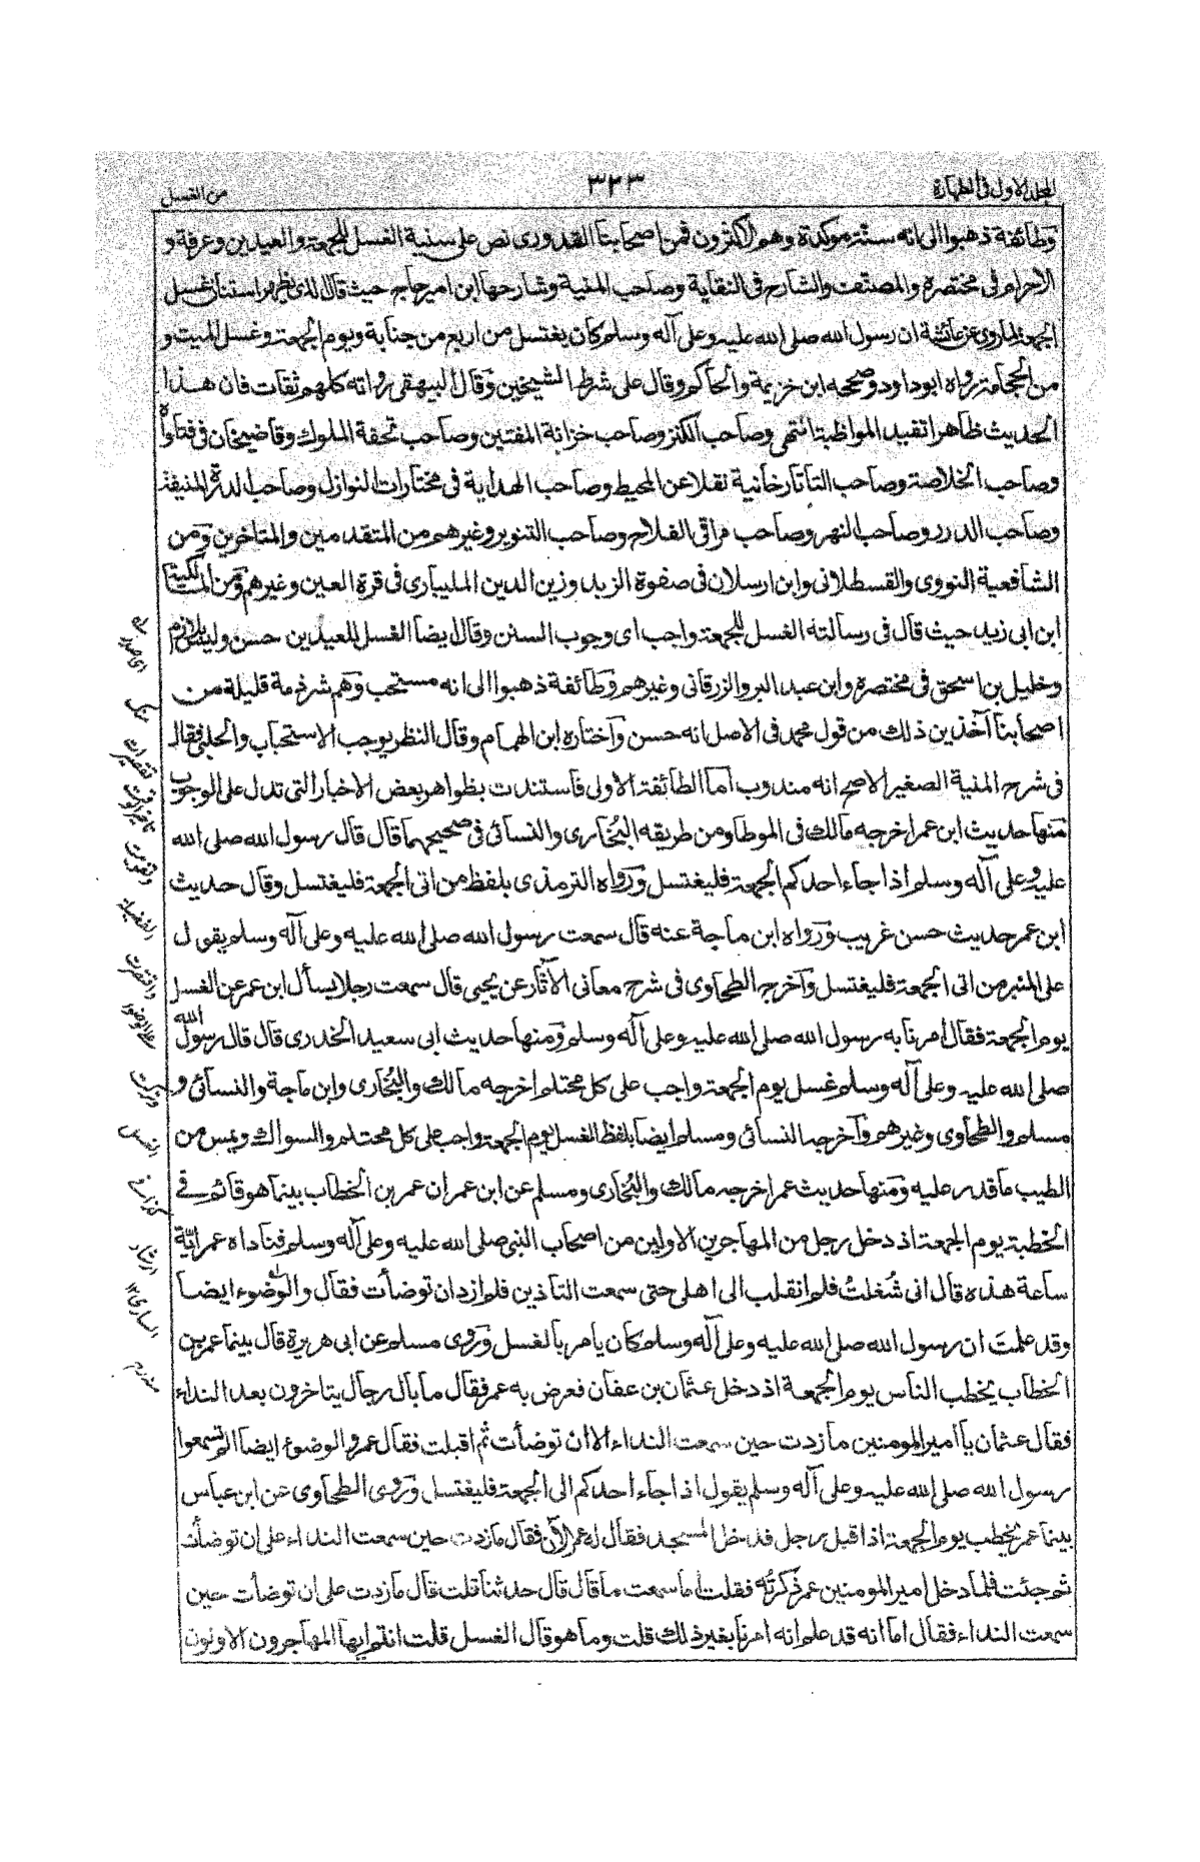 المجلد الاول فى الطهارة
٣٢٣
من الغسل
وطائفة ذهبوا الى انه سنة موكدة وهم الاكثرون فمن اصحابنا القدورى نص على سنية الغسل للجمعة والعيدين وعرفة و
الاحرام فى مختصره والمصنف والشارح فى النقاية وصاحب المنية وشارحها ابن امير حاج حيث قال الذى نظهر استنان غسل
الجمعة لماروى عن عائشة ان رسول الله صلى الله عليه وعلى آله وسلم كان يغتسل من اربع من جنابة ويوم الجمعة وغسل الميت و
من الحجامة رواه ابوداود وصححه ابن خزيمة والحاكم وقال على شرط الشيخين وقال البيهقى رواته كلهم ثقات فان هذا
الحديث ظاهرا تفيد المواظبة انتهى وصاحب الكنز وصاحب خزانة المفتين وصاحب تحفة الملوك وقاضيخان فى فتاواه
وصاحب الخلاصة وصاحب التاتارخانية نقلا عن المحيط وصاحب الهداية فى مختارات النوازل وصاحب الدرة المنيفة
وصاحب الدرر وصاحب النهر وصاحب مراقى الفلاح وصاحب التنوير وغيرهم من المتقدمين والمتاخرين ومن
الشافعية النووى والقسطلانى وابن ارسلان فى صفوة الزبد وزين الدين المليبارى فى قرة العين وغيرهم ومن المالكية
ابن ابى زيد حيث قال فى رسالته الغسل للجمعة واجب اى وجوب السنن وقال ايضا الغسل للعيدين حسن وليس بلازم
وخليل بن اسحق فى مختصره وابن عبد البر والزرقانى وغيرهم وطائفة ذهبوا الى انه مستحب وهم شرذمة قليلة من
اصحابنا آخذين ذلك من قول محمد فى الاصل انه حسن واختاره ابن الهمام وقال النظر يوجب الاستحباب والحلبى فقال
فى شرح المنية الصغير الاصح انه مندوب اما الطائفة الاولى فاستندت بظواهر بعض الاخبار التى تدل على الوجوب
منها حديث ابن عمر اخرجه مالك فى الموطا ومن طريقه البخارى والنسائى فى صحيحهما قال قال رسول الله صلى الله
عليه وعلى آله وسلم اذا جاء احدكم الجمعة فليغتسل ورواه الترمذى بلفظ من اتى الجمعة فليغتسل وقال حديث
ابن عمر حديث حسن غريب ورواه ابن ماجة عنه قال سمعت رسول الله صلى الله عليه وعلى آله وسلم يقول
على المنبر من اتى الجمعة فليغتسل وآخرجه الطحاوى فى شرح معانى الآثار عن يحيى قال سمعت رجلا يسأل ابن عمر عن الغسل
يوم الجمعة فقال امرنا به رسول الله صلى الله عليه وعلى آله وسلم ومنها حديث ابى سعيد الخدرى قال قال رسول الله
صلى الله عليه وعلى آله وسلم غسل يوم الجمعة واجب على كل محتلم اخرجه مالك والبخارى وابن ماجة والنسائى و
مسلم والطحاوى وغيرهم وآخرجه النسائى ومسلم ايضا بلفظ الغسل يوم الجمعة واجب على كل محتلم والسواك ويمس من
الطيب ماقدر عليه ومنها حديث عمر اخرجه مالك والبخارى ومسلم عن ابن عمر ان عمر بن الخطاب بينما هو قائم فى
الخطبة يوم الجمعة اذ دخل رجل من المهاجرين الاولين من اصحاب النبى صلى الله عليه وعلى آله وسلم فناداه عمر اية
ساعة هذه قال انى شغلت فلم انقلب الى اهلى حتى سمعت التاذين فلم ازد ان توضأت فقال والوضوء ايضا
وقد علمت ان رسول الله صلى الله عليه وعلى آله وسلم كان يامر بالغسل وروى مسلم عن ابى هريرة قال بينما عمر بن
الخطاب يخطب الناس يوم الجمعة اذ دخل عثمان بن عفان فعرض به عمر فقال ما بال رجال يتاخرون بعد النداء
فقال عثمان يا امير المومنين ما زدت حين سمعت النداء الا ان توضأت ثم اقبلت فقال عمر والوضوء ايضا الم تسمعوا
رسول الله صلى الله عليه وعلى آله وسلم يقول اذا جاء احدكم الى الجمعة فليغتسل وروى الطحاوى عن ابن عباس
بينما عمر يخطب يوم الجمعة اذا قبل رجل فدخل المسجد فقال له عمر الآن فقال ما زدت حين سمعت النداء على ان توضأت
ثم جئت فلما دخل امير المومنين عمر ذكرته فقلت اما سمعت ما قال قال حدثنا قلت قال ما زدت على ان توضأت حين
سمعت النداء فقال اما انه قد علم انه امرنا بغير ذلك قلت وما هو قال الغسل قلت انتم ايها المهاجرون الاولون